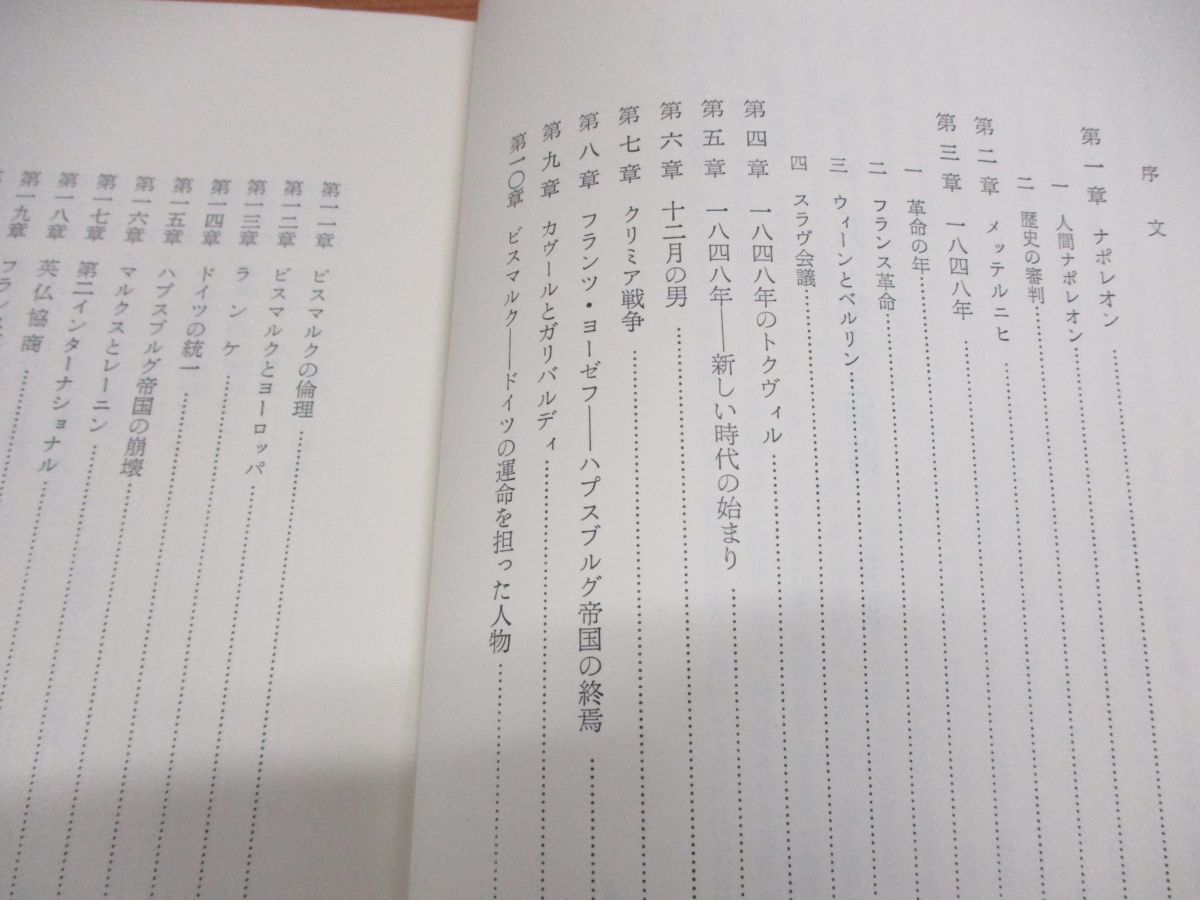 序文
第一章 ナポレオン
一 人間ナポレオン
二 歴史の審判
第二章 メッテルニヒ
第三章 一八四八年
一 革命の年
二 フランス革命
三 ウィーンとベルリン
四 スラヴ会議
第四章 一八四八年のトクヴィル
第五章 一八四八年――新しい時代の始まり
第六章 十二月の男
第七章 クリミア戦争
第八章 フランツ・ヨーゼフ――ハプスブルグ帝国の終焉
第九章 カヴールとガリバルディ
第一〇章 ビスマルク――ドイツの運命を担った人物
第一一章 ビスマルクの倫理
第一二章 ビスマルクとヨーロッパ
第一三章 ランケ
第一四章 ドイツの統一
第一五章 ハプスブルグ帝国の崩壊
第一六章 マルクスとレーニン
第一七章 第二インターナショナル
第一八章 英仏協商
第一九章